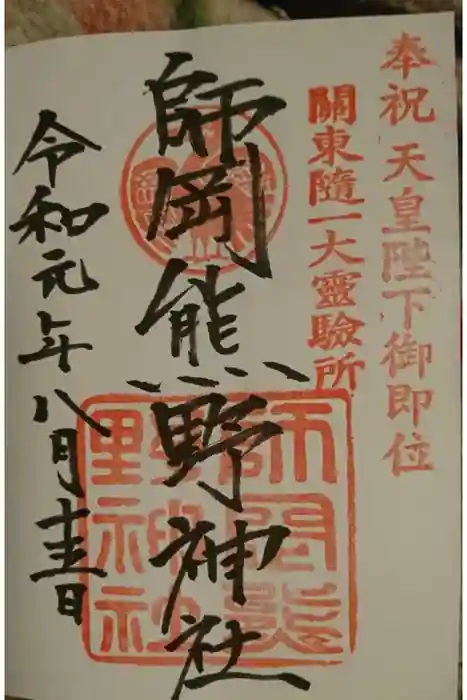 奉祝 天皇陛下御即位
關東隨一大靈驗所
師岡熊野神社
師岡熊
野神社
令和元年八月十三日